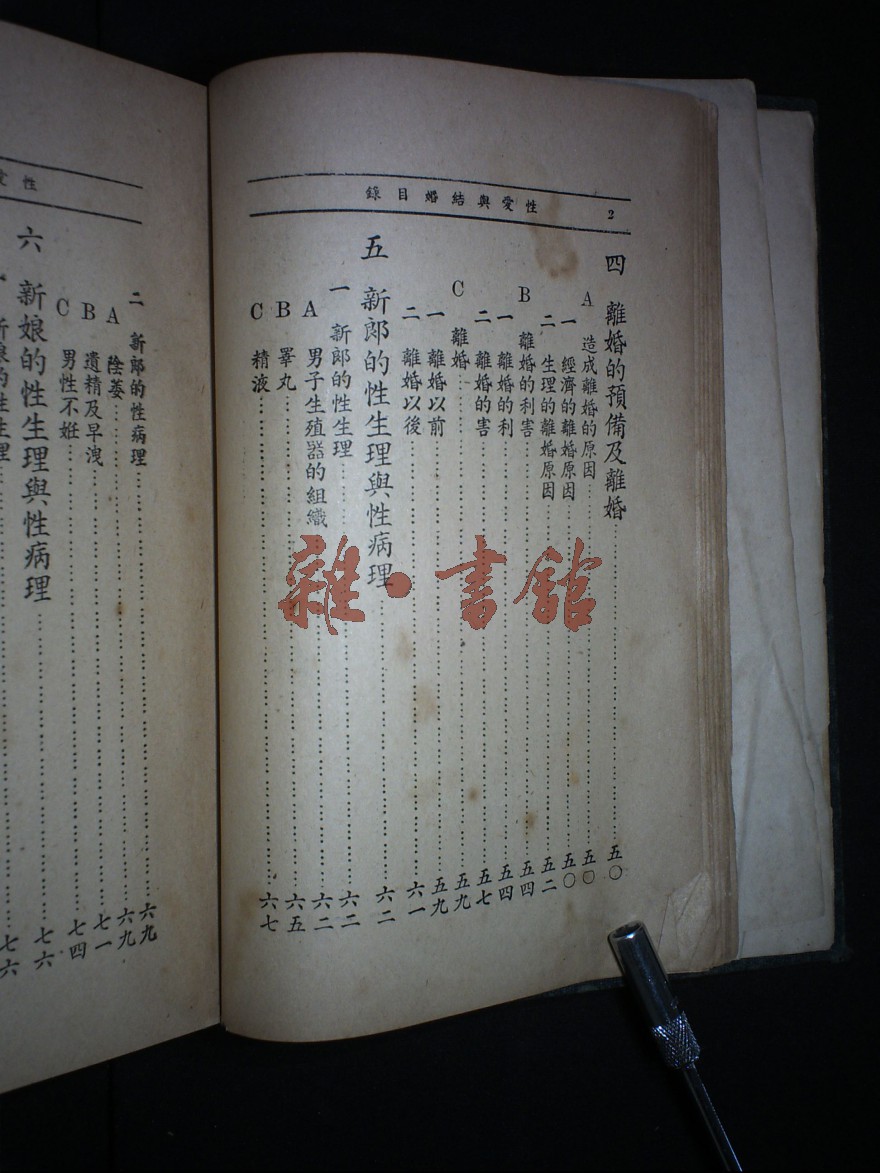 2 性愛與結婚目錄
四 離婚的預備及離婚……五〇
A 造成離婚的原因……五〇
一 經濟的離婚原因……五〇
二 生理的離婚原因……五二
B 離婚的利害……五四
一 離婚的利……五四
二 離婚的害……五七
C 離婚……五九
一 離婚以前……五九
二 離婚以後……六一
五 新郎的性生理與性病理……六二
一 新郎的性生理……六二
A 男子生殖器的組織……六二
B 睾丸……六五
C 精液……六七
性
二 新郎的性病理……六九
A 陰萎……六九
B 遺精及早洩……七一
C 男性不姙……七四
六 新娘的性生理與性病理……七六
新娘的性生理……七六
雜·書館